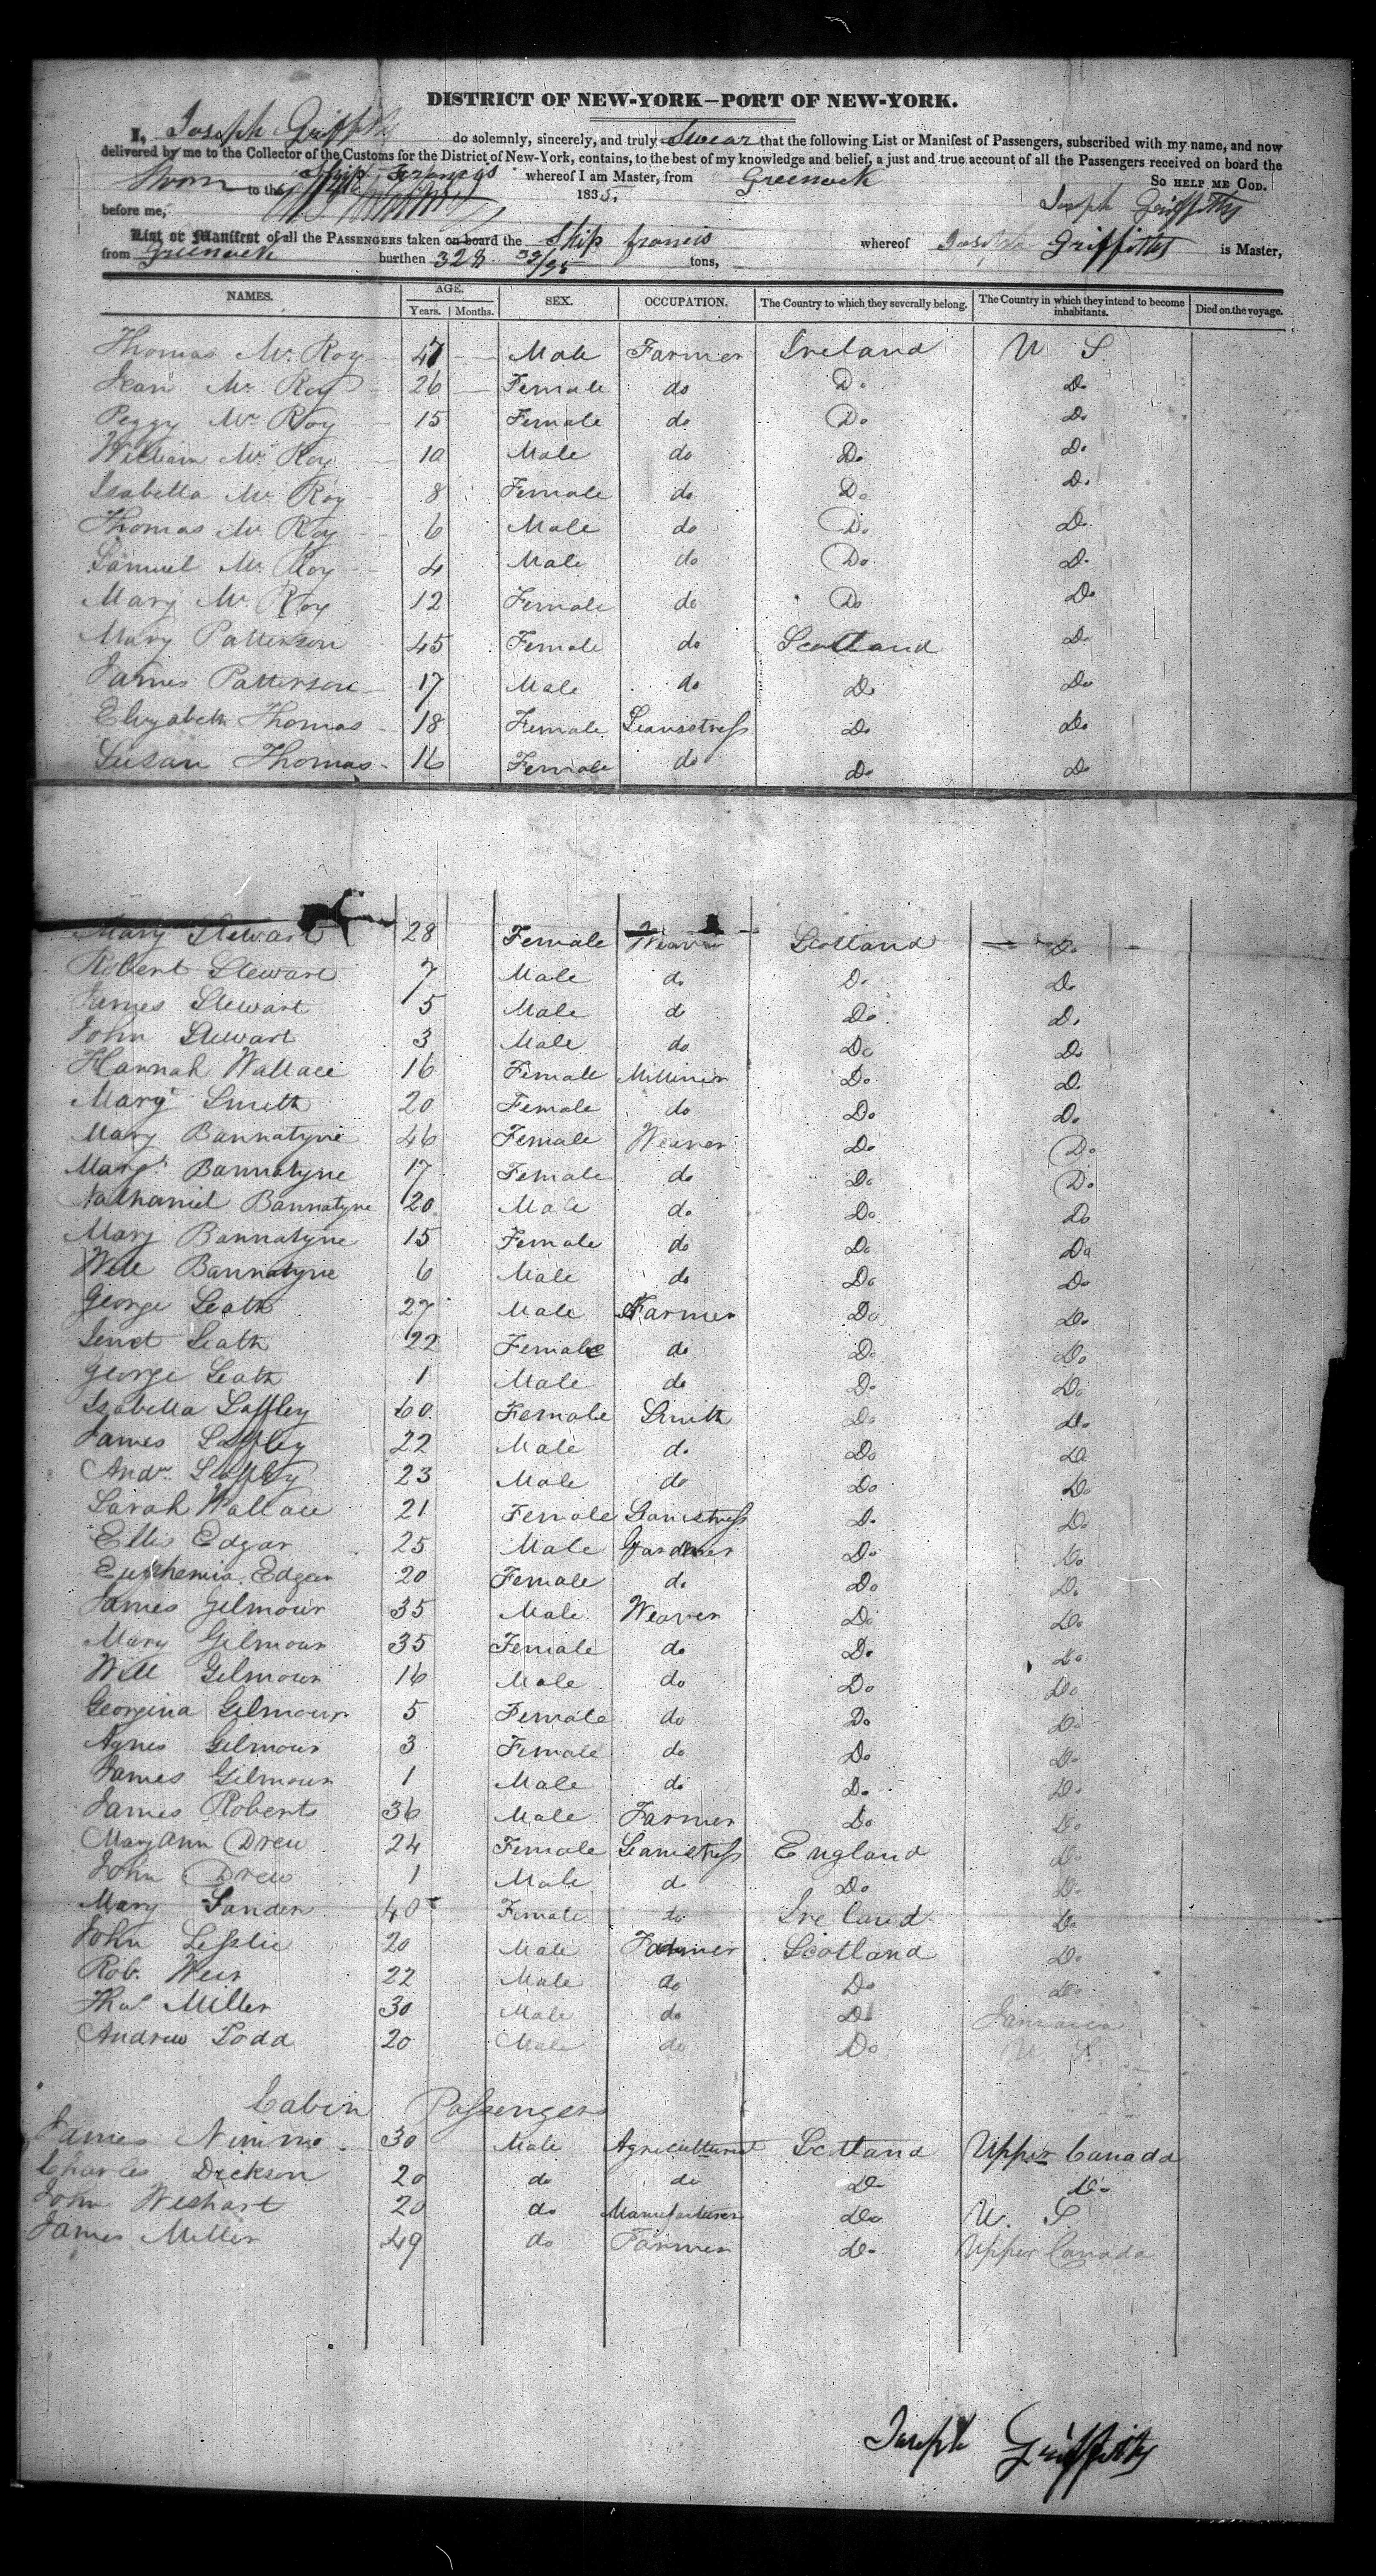 DISTRICT OF NEW-YORK—PORT OF NEW-YORK.
I, Joseph Griffiths do solemnly, sincerely, and truly Swear that the following List or Manifest of Passengers, subscribed with my name, and now
delivered by me to the Collector of the Customs for the District of New-York, contains, to the best of my knowledge and belief, a just and true account of all the Passengers received on board the
Ship Francis whereof I am Master, from Greenock
Sworn to the 1835. So help me God.
before me, Joseph Griffiths
List or Manifest of all the Passengers taken on board the Ship francis whereof Joseph Griffiths is Master,
from Greenock burthen 328 33/95 tons,
NAMES. AGE. SEX. OCCUPATION. The Country to which they severally belong. The Country in which they intend to become inhabitants. Died on the voyage.
Years. Months.
Thomas Mc Roy 47 Male Farmer Ireland U S
Jean Mc Roy 26 Female do Do Do
Peggy Mc Roy 15 Female do Do Do
William Mc Roy 10 Male do Do Do
Isabella Mc Roy 8 Female do Do Do
Thomas Mc Roy 6 Male do Do Do
Samuel Mc Roy 4 Male do Do Do
Mary Mc Roy 12 Female do Do Do
Mary Patterson 45 Female do Scotland Do
James Patterson 17 Male do Do Do
Elizabeth Thomas 18 Female Seamstress Do Do
Susan Thomas 16 Female do Do Do
Mary Stewart 28 Female Weaver Scotland Do
Robert Stewart 7 Male do Do Do
James Stewart 5 Male do Do Do
John Stewart 3 Male do Do Do
Hannah Wallace 16 Female Milliner Do Do
Mary Smith 20 Female do Do Do
Mary Bannatyne 46 Female Weaver Do Do
Margt Bannatyne 17 Female do Do Do
Nathaniel Bannatyne 20 Male do Do Do
Mary Bannatyne 15 Female do Do Do
Will Bannatyne 6 Male do Do Do
George Leath 27 Male Farmer Do Do
Jenet Leath 22 Female do Do Do
George Leath 1 Male do Do Do
Isabella Laffley 60 Female Smith Do Do
James Laffley 22 Male do Do Do
Andw Laffley 23 Male do Do Do
Sarah Wallace 21 Female Samstress Do Do
Ellis Edgar 25 Male Gardner Do Do
Euphemia Edgar 20 Female do Do Do
James Gilmour 35 Male Weaver Do Do
Mary Gilmour 35 Female do Do Do
Will Gilmour 16 Male do Do Do
Georgina Gilmour 5 Female do Do Do
Agnes Gilmour 3 Female do Do Do
James Gilmour 1 Male do Do Do
James Roberts 36 Male Farmer Do Do
MaryAnn Drew 24 Female Samstress England Do
John Drew 1 Male do Do Do
Mary Sanders 40 Female do Ireland Do
John Leslie 20 Male Farmer Scotland Do
Rob. Weir 22 Male do Do Do
Thos Miller 30 Male do Do Jamaica
Andrew Todd 20 Male do Do U S
Cabin Passengers
James Nimmo 30 Male Agriculturist Scotland Upper Canada
Charles Dickson 20 do do Do Do
John Weshart 20 do Manufacturer Do U. S
James Miller 49 do Farmer Do Upper Canada
Joseph Griffiths